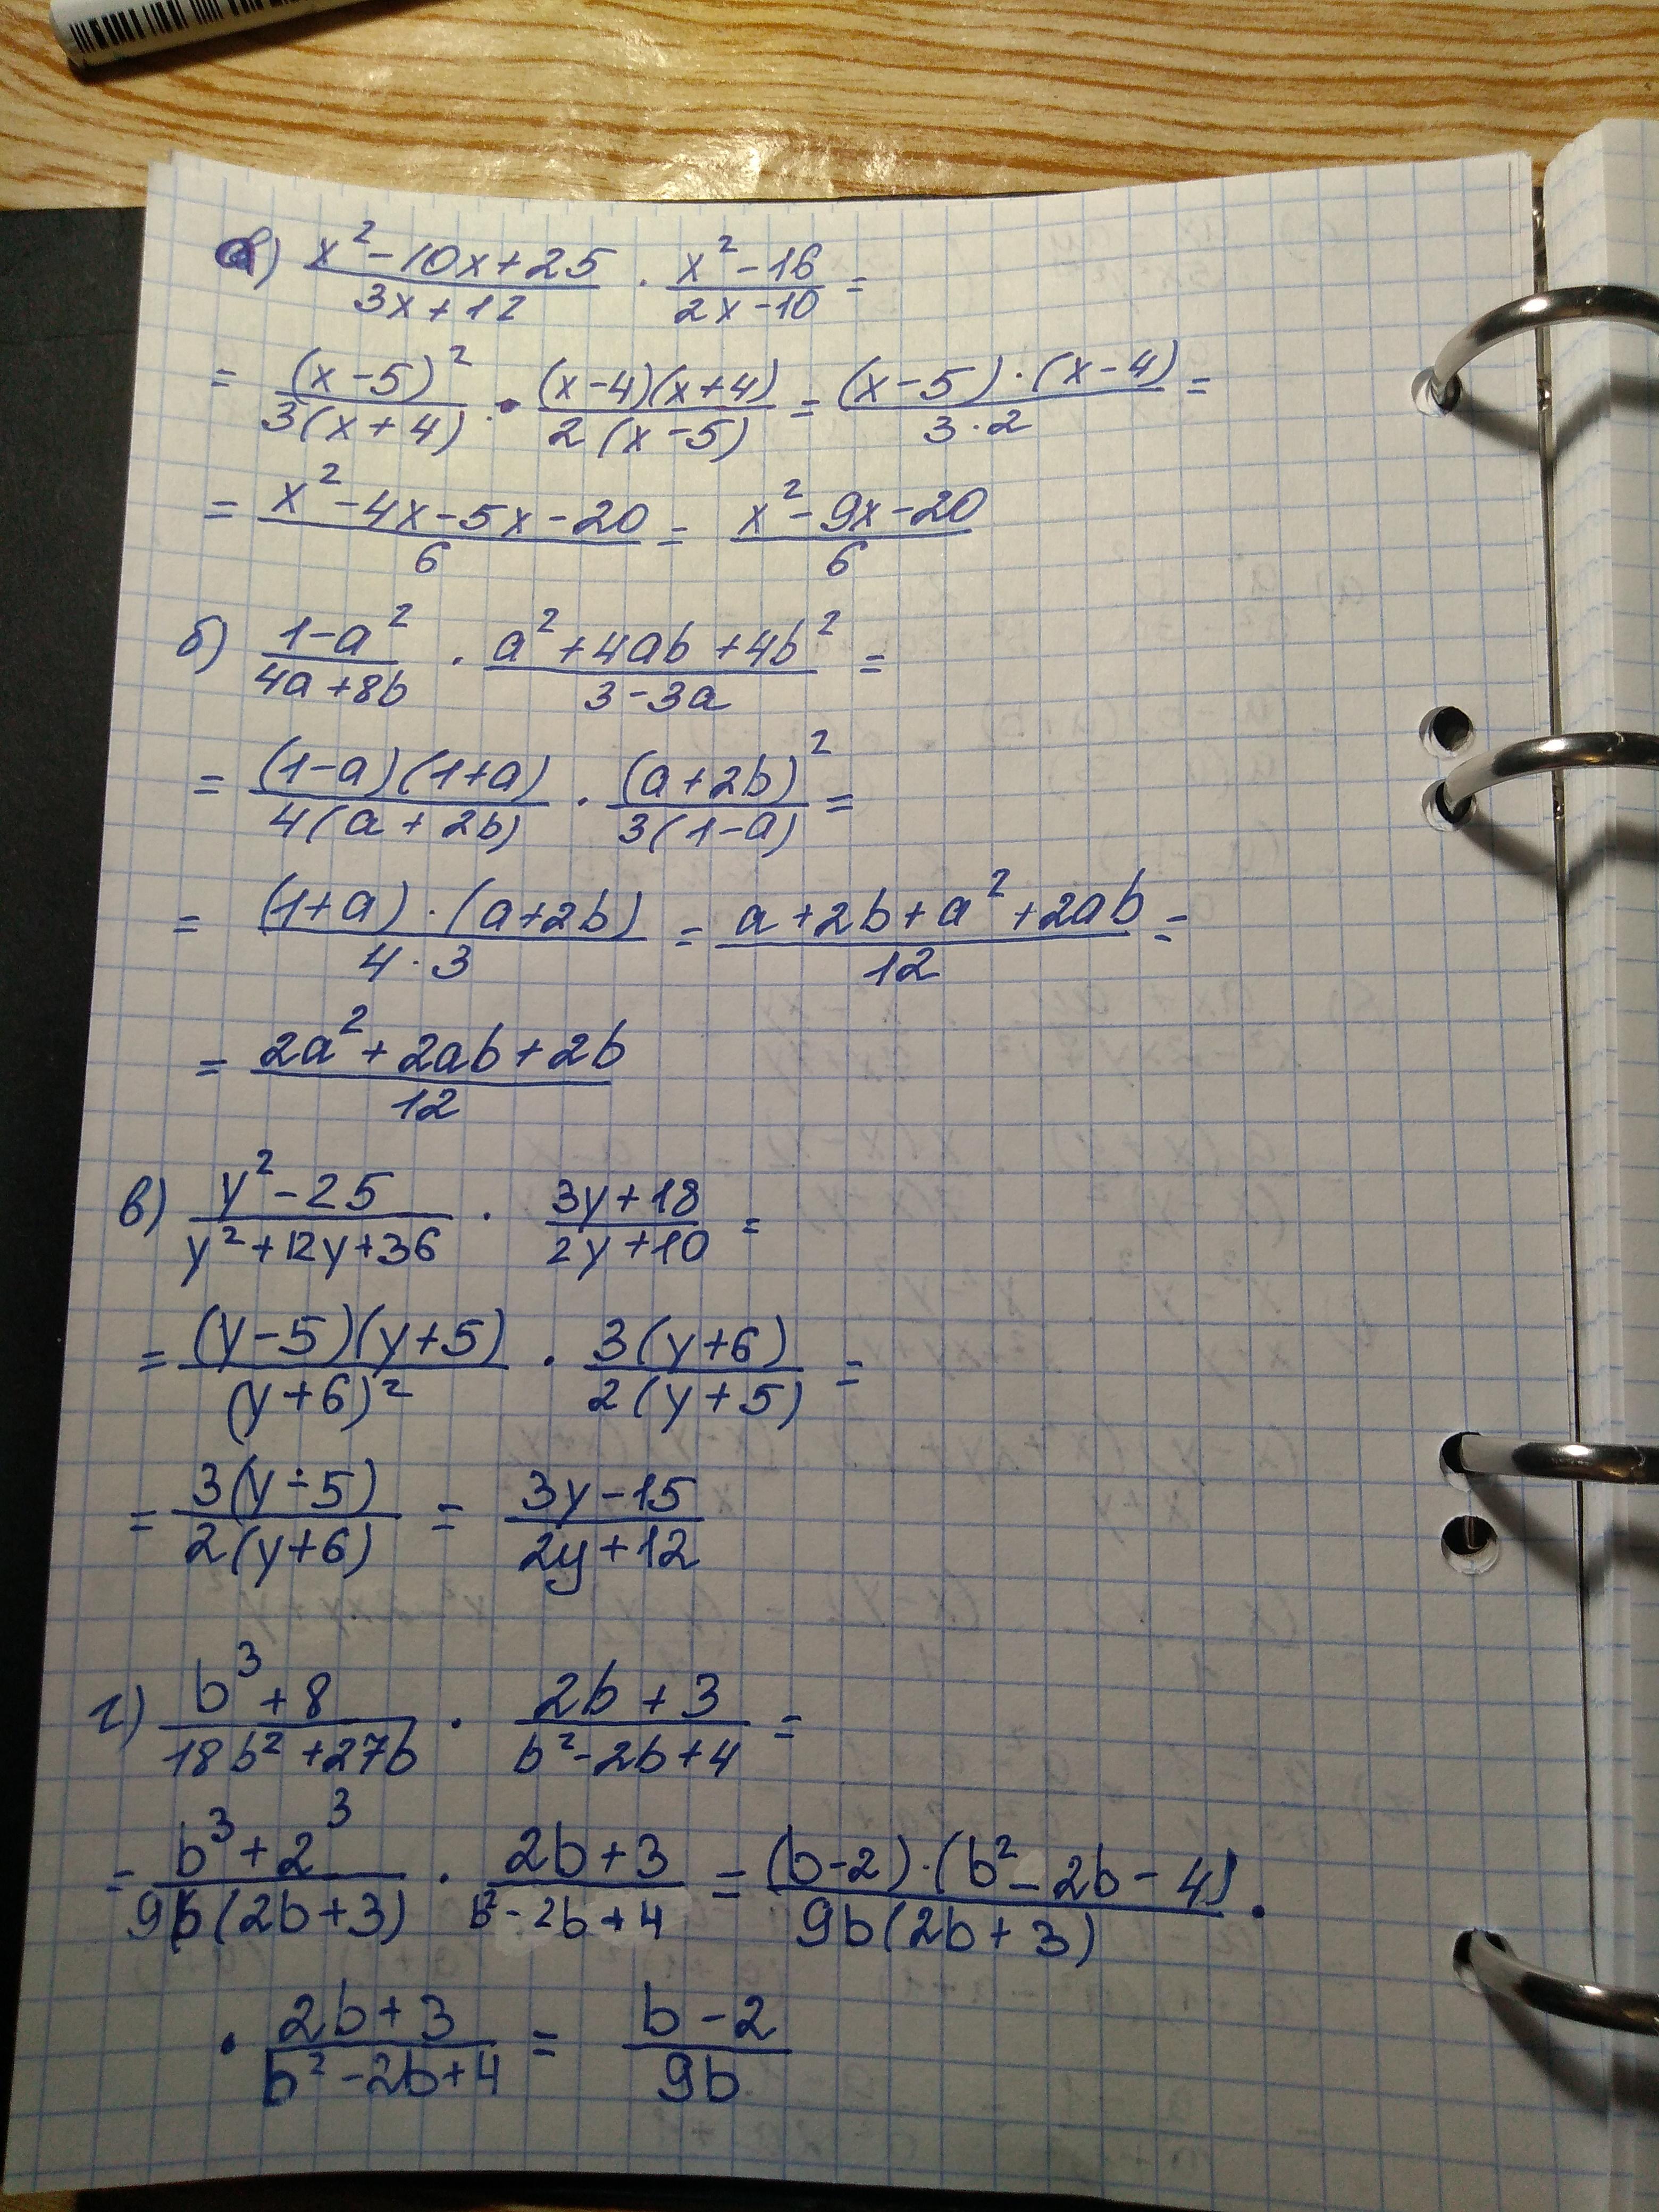 а) (x² - 10x + 25)/(3x + 12) · (x² - 16)/(2x - 10) =
= (x - 5)²/(3(x + 4)) · ((x - 4)(x + 4))/(2(x - 5)) = ((x - 5) · (x - 4))/(3 · 2) =
= (x² - 4x - 5x - 20)/6 = (x² - 9x - 20)/6
б) (1 - a²)/(4a + 8b) · (a² + 4ab + 4b²)/(3 - 3a) =
= ((1 - a)(1 + a))/(4(a + 2b)) · (a + 2b)²/(3(1 - a)) =
= ((1 + a) · (a + 2b))/(4 · 3) = (a + 2b + a² + 2ab)/12 =
= (2a² + 2ab + 2b)/12
в) (y² - 25)/(y² + 12y + 36) · (3y + 18)/(2y + 10) =
= ((y - 5)(y + 5))/(y + 6)² · (3(y + 6))/(2(y + 5)) =
= (3(y - 5))/(2(y + 6)) = (3y - 15)/(2y + 12)
г) (b³ + 8)/(18b² + 27b) · (2b + 3)/(b² - 2b + 4) =
= (b³ + 2³)/(9b(2b + 3)) · (2b + 3)/(b² - 2b + 4) = ((b - 2) · (b² - 2b - 4))/(9b(2b + 3)) ·
· (2b + 3)/(b² - 2b + 4) = (b - 2)/(9b)